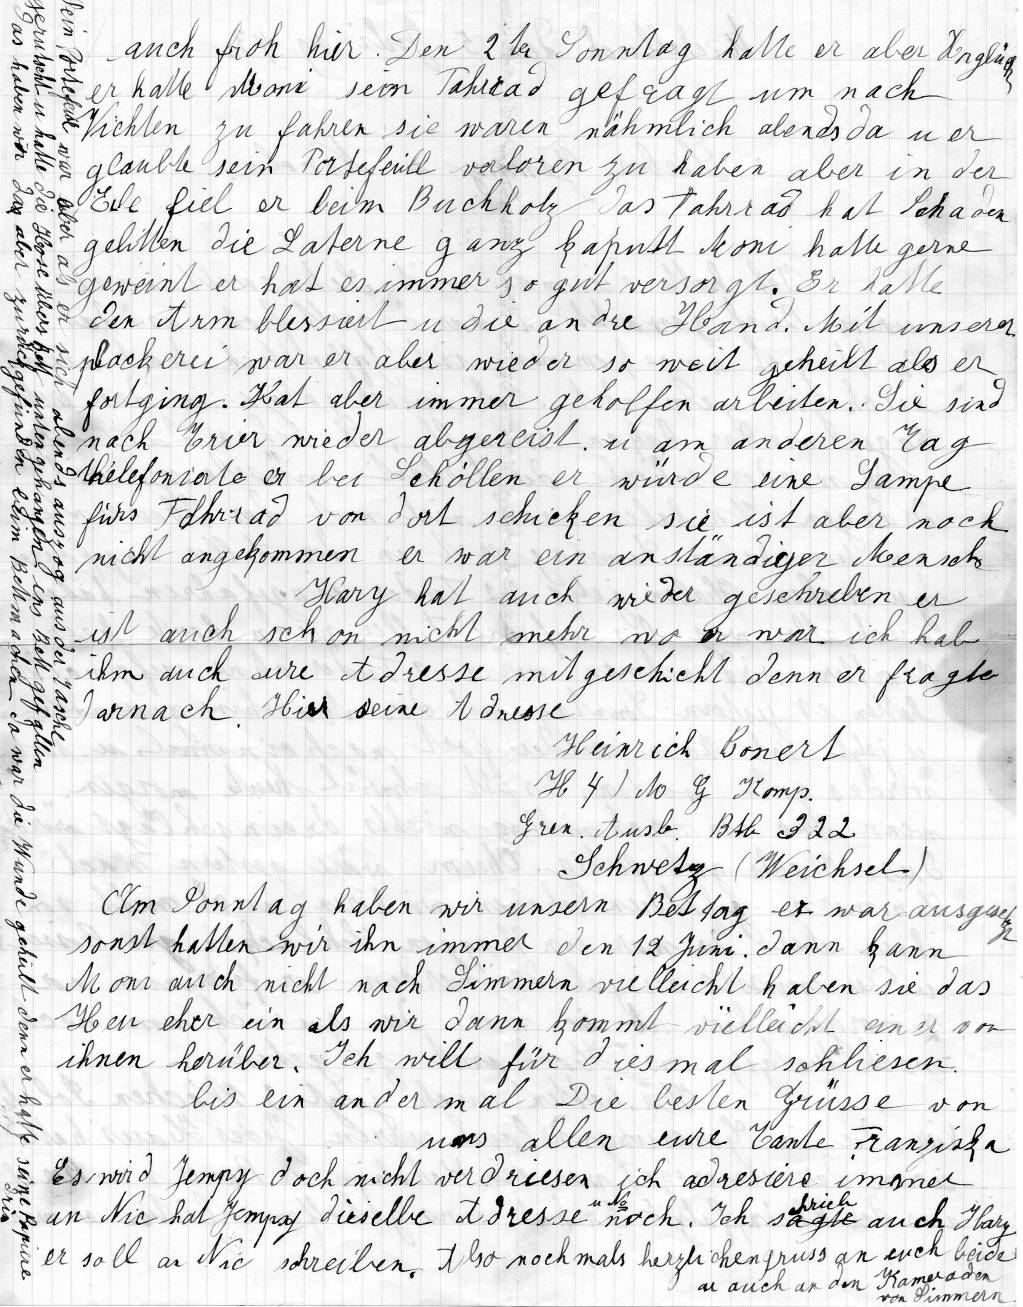 auch froh hier. Den 2ter Sonntag hatte er aber Unglück
er hatte Moni sein Fahrrad gefragt um nach
Vichten zu fahren sie waren nähmlich abends da u er
glaubte sein Portefeuill verloren zu haben aber in der
Eile fiel er beim Buchholz das Fahrrad hat Schaden
gelitten die Laterne ganz kaputt Moni hatte gerne
geweint er hat es immer so gut versorgt. Er hatte
den Arm blessiert u die andre Hand. Mit unserer
plackerei war er aber wieder so weit geheilt als er
fortging. Hat aber immer geholfen arbeiten. Sie sind
nach Trier wieder abgereist. u am anderen Tag
thelefonierte er bei Schöllen er würde eine Lampe
fürs Fahrrad von dort schicken sie ist aber noch
nicht angekommen er war ein anständiger Mensch
Hary hat auch wieder geschreben er
ist auch schon nicht mehr wo er war ich hab
ihm auch ure Adresse mitgeschickt denn er fragte
darnach. Hier seine Adresse
Heinrich Conert
H 4) M G Komp.
Gren. Ausb. Btb 322
Schwetz (Weichsel)
Am Sonntag haben wir unsern Bettag er war ausgesetzt
sonst hatten wir ihn immer den 12 Juni. dann kann
Moni auch nicht nach Simmern vielleicht haben sie das
Heu eher ein als wir dann kommt vielleicht einer von
ihnen herüber. Ich will für diesmal schliesen.
bis ein ander mal Die besten Grüsse von
uns allen eure Tante Franziska
Es wird Jempy doch nicht verdriesen ich adresiere immer
an Nic hat Jempy dieselbe Adresse u No noch. Ich sagte schrieb auch Hary
er soll an Nic schreiben. Also nochmals herzlichengruss an euch beide
ar auch an den Kameraden
von Simmern
Sein Portefeuil war aber als er sich abends auszog aus der Tasche
gerutscht u hatte die Hose übers Bett unten gehangen ins Bett gefallen
Das haben wir dan aber zurückgefunden beim Bettmachen da war die Wunde geheilt denn er hatte seine Papiere